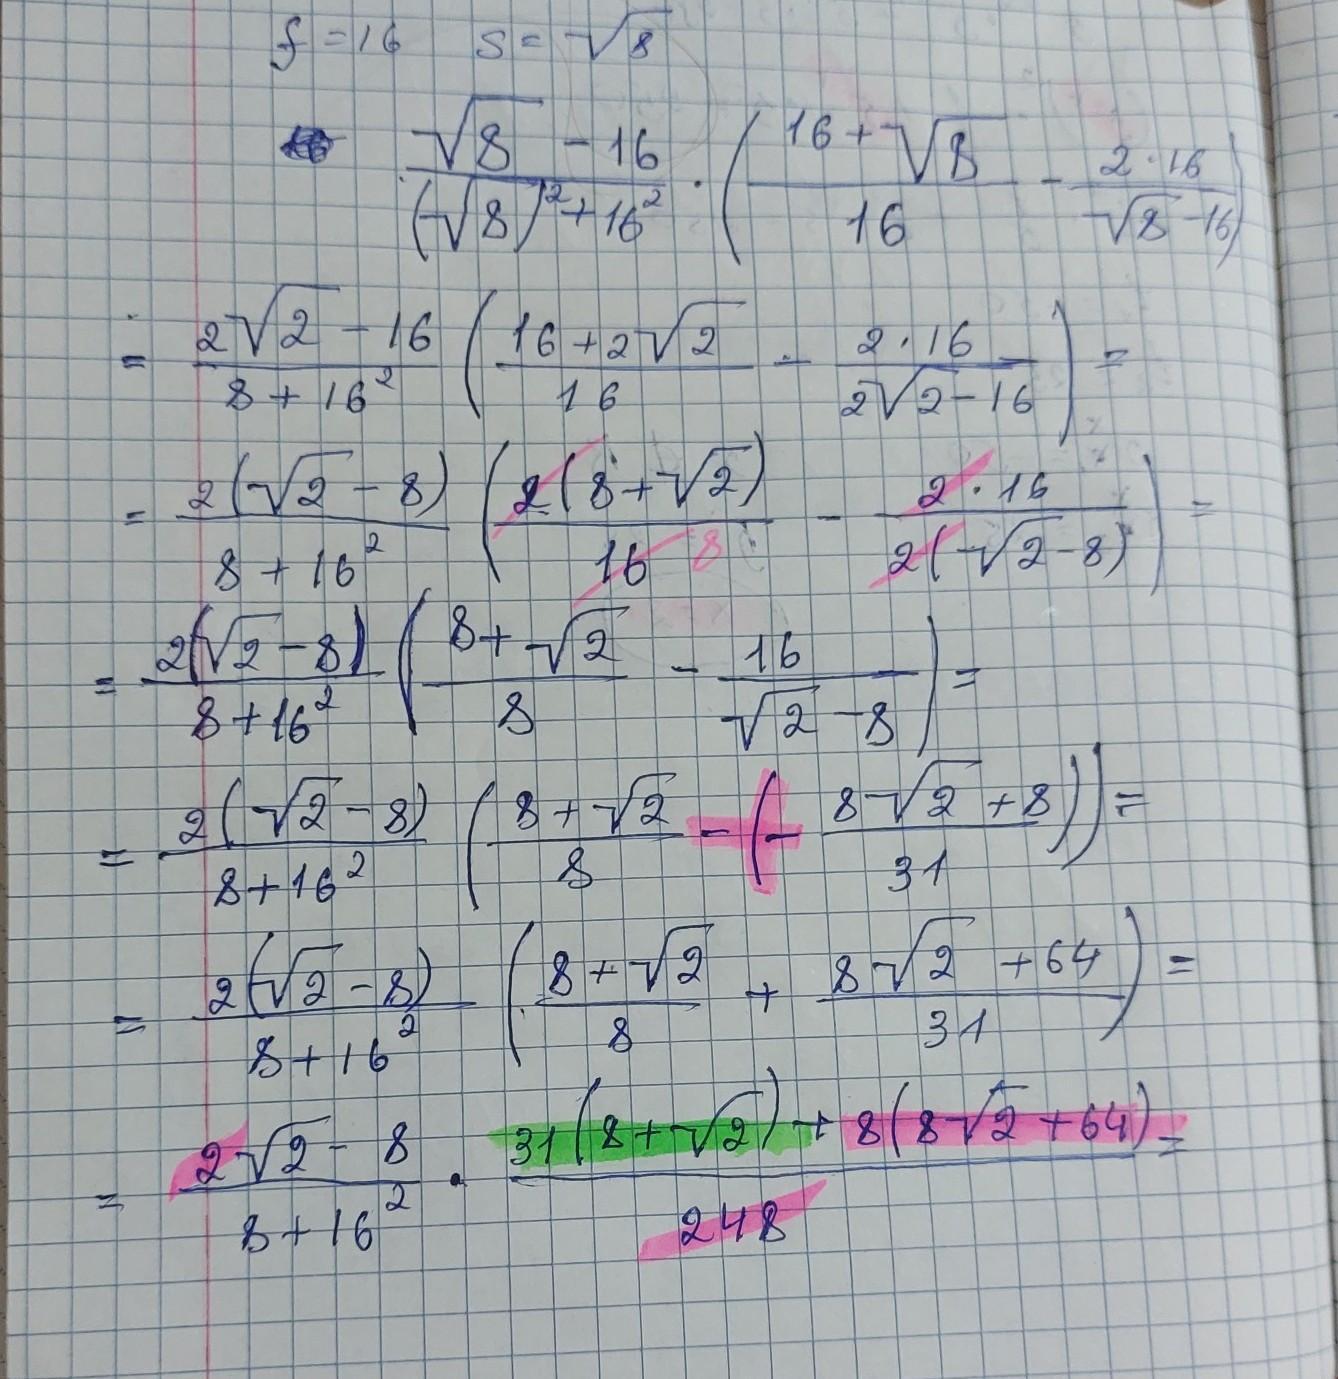 f = 16 s = √8
(√8 - 16)/((√8)² + 16²) · ((16 + √8)/16 - (2·16)/(√8 - 16))
= (2√2 - 16)/(8 + 16²) ((16 + 2√2)/16 - (2·16)/(2√2 - 16)) =
= (2(√2 - 8))/(8 + 16²) ((2(8 + √2))/(16 8) - (2·16)/(2(√2 - 8))) =
= (2(√2 - 8))/(8 + 16²) ((8 + √2)/8 - 16/(√2 - 8)) =
= (2(√2 - 8))/(8 + 16²) ((8 + √2)/8 - (- (8√2 + 8)/31)) =
= (2(√2 - 8))/(8 + 16²) ((8 + √2)/8 + (8√2 + 64)/31) =
= (2√2 - 8)/(8 + 16²) · (31(8 + √2) + 8(8√2 + 64))/248 =